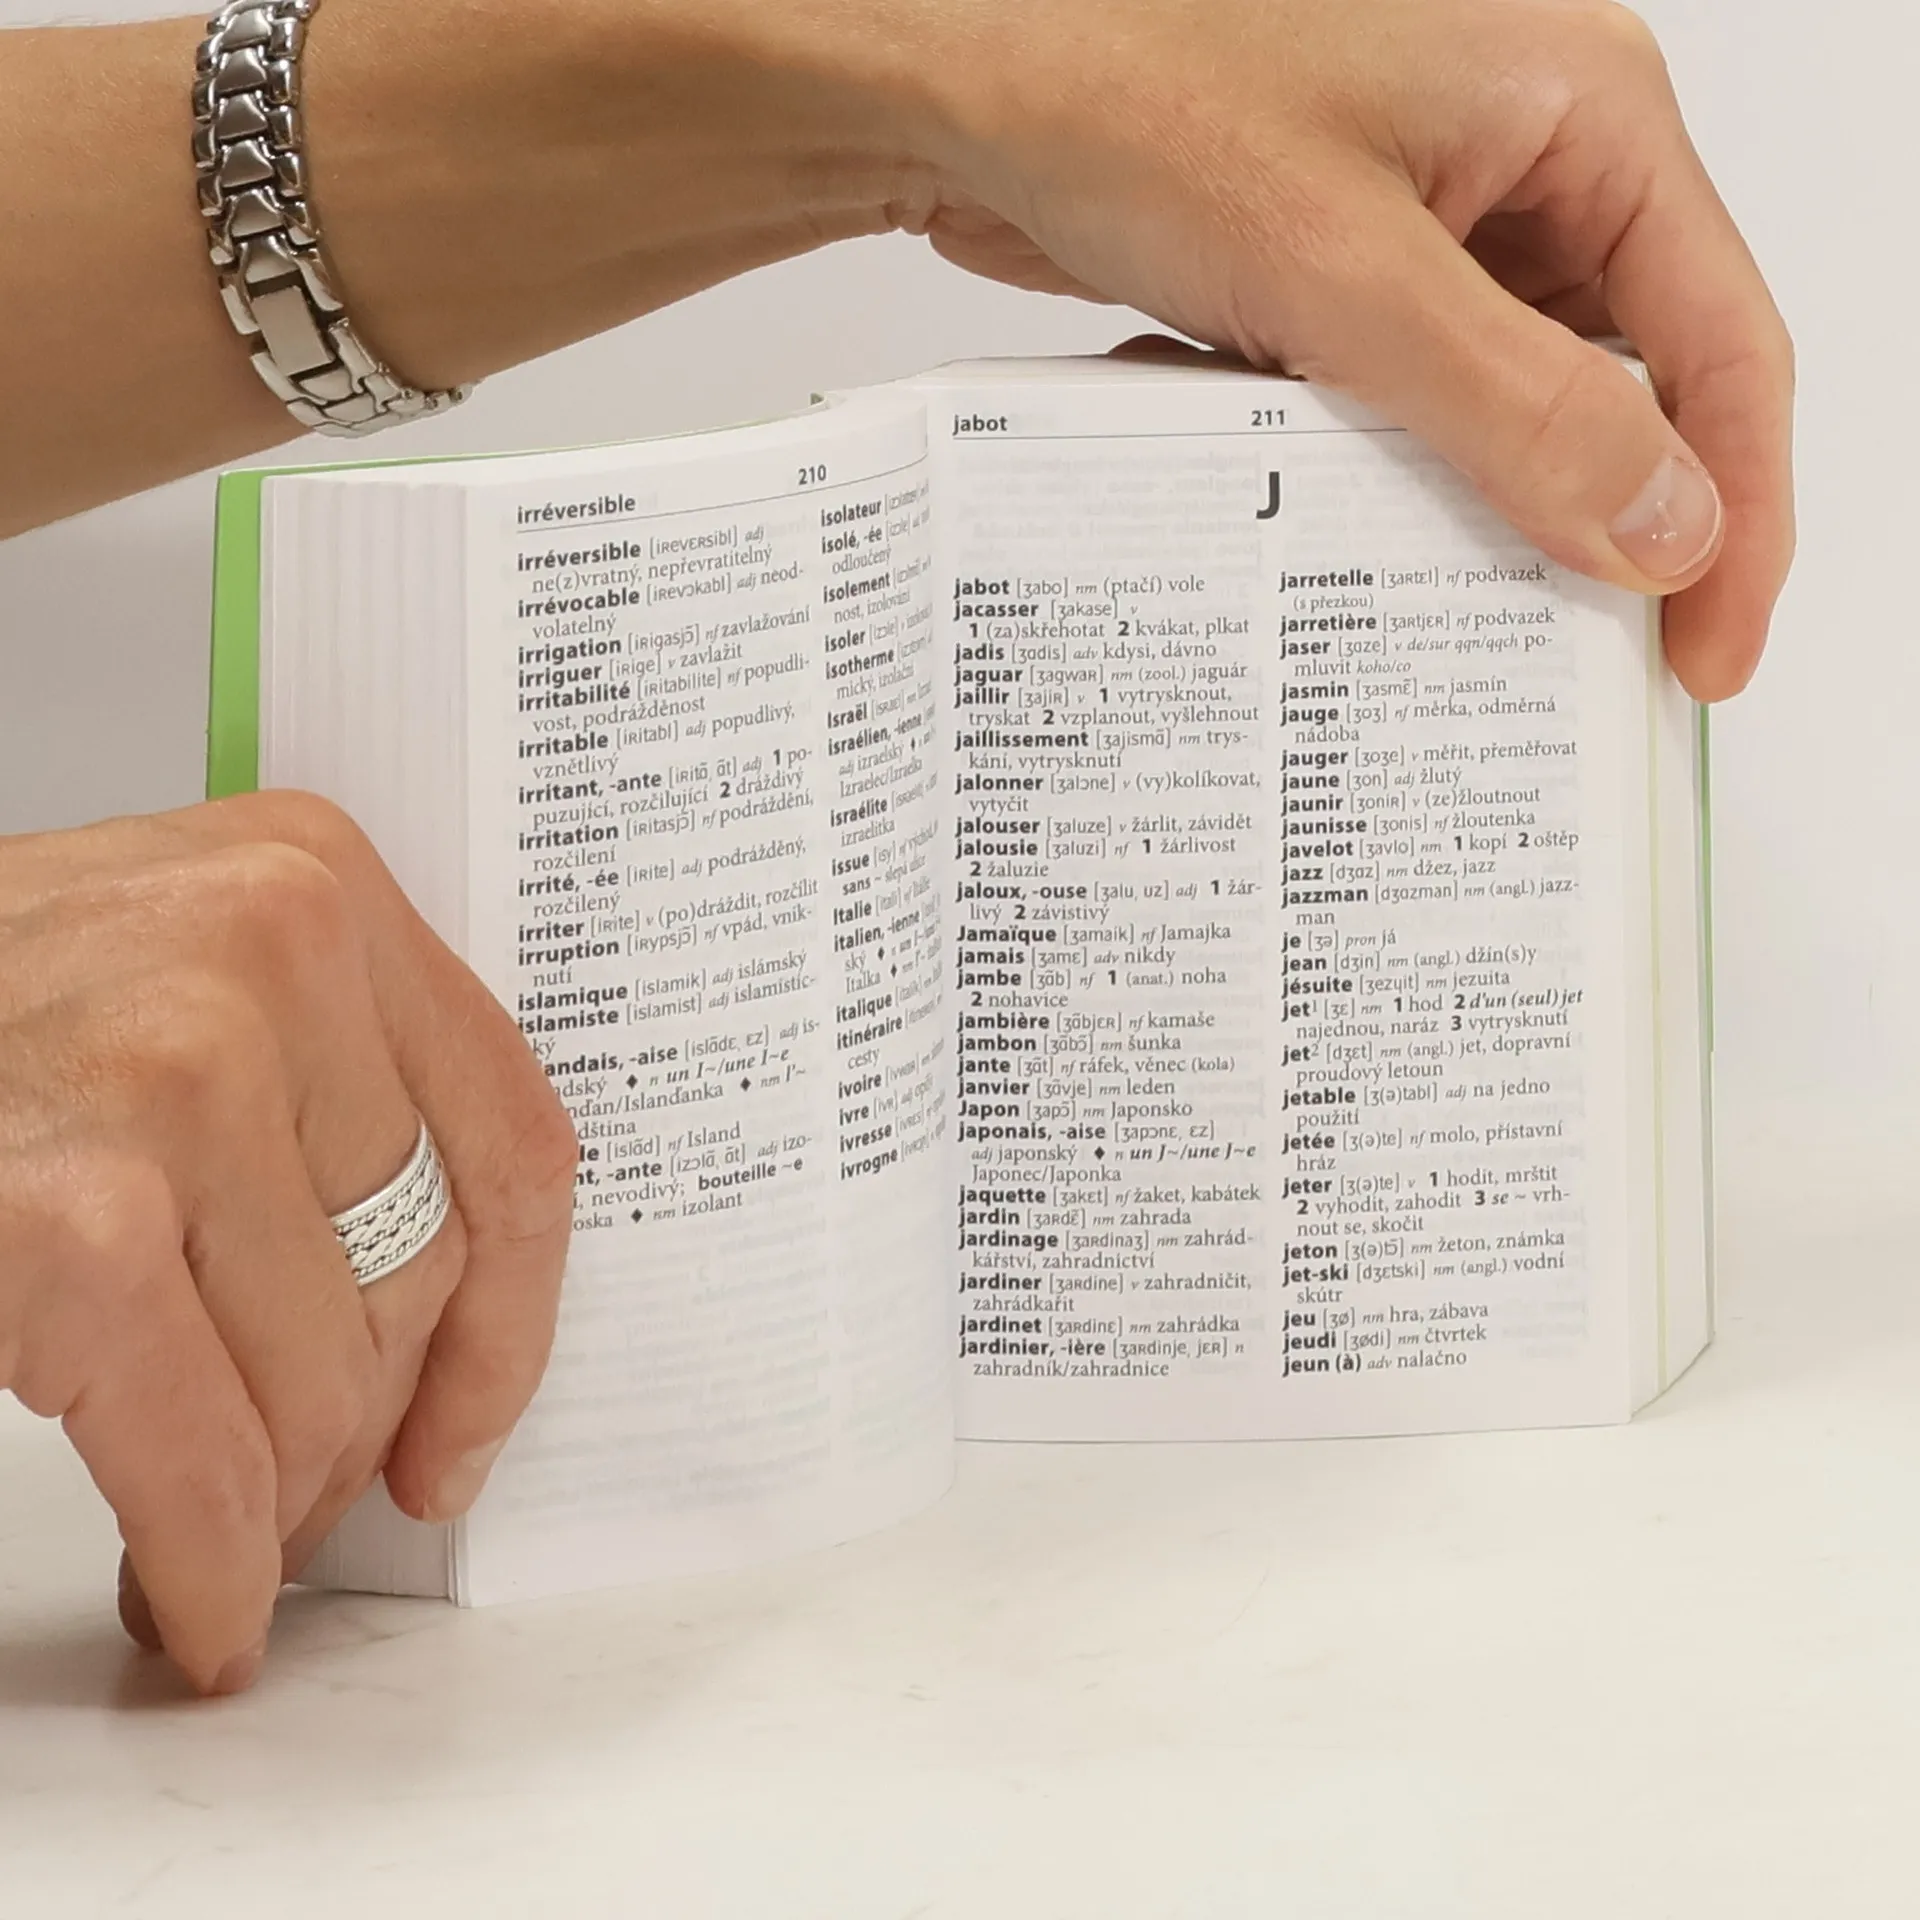 irréversible
210
irréversible [iREVERsibl] adj
ne(z)vratný, nepřevratitelný
irrévocable [iREvɔkabl] adj neod-
volatelný
irrigation [iRigasjɔ̃] nf zavlažování
irriguer [iRige] v zavlažit
irritabilité [iRitabilite] nf popudli-
vost, podrážděnost
irritable [iRitabl] adj popudlivý,
vznětlivý
irritant, -ante [iRitɑ̃, ɑ̃t] adj 1 po-
puzující, rozčilující 2 dráždivý
irritation [iRitasjɔ̃] nf podráždění,
rozčilení
irrité, -ée [iRite] adj podrážděný,
rozčilený
irriter [iRite] v (po)dráždit, rozčílit
irruption [iRypsjɔ̃] nf vpád, vnik-
nutí
islamique [islamik] adj islámský
islamiste [islamist] adj islamistic-
ký
andais, -aise [islɑ̃dɛ, ɛz] adj is-
dský ♦ n un I~/une I~e
nďan/Islanďanka ♦ nm l'~
dština
le [islɑ̃d] nf Island
nt, -ante [izɔlɑ̃, ɑ̃t] adj izo-
í, nevodivý; bouteille ~e
oska ♦ nm izolant
isolateur
isolé, -ée
odloučený
isolement
nost, izolování
isoler
isotherme
mický, izolační
Israël
israélien, -ienne
adj izraelský ♦
Izraelec/Izraelka
israélite
izraelitka
issue [isy] nf východ,
sans ~ slepá ulice
Italie [itali] nf Itálie
italien, -ienne
ský ♦
Italka ♦
italique
itinéraire
cesty
ivoire
ivre
ivresse
ivrogne
jabot
211
J
jabot [ʒabo] nm (ptačí) vole
jacasser [ʒakase] v
1 (za)skřehotat 2 kvákat, plkat
jadis [ʒɑdis] adv kdysi, dávno
jaguar [ʒagwaR] nm (zool.) jaguár
jaillir [ʒajiR] v 1 vytrysknout,
tryskat 2 vzplanout, vyšlehnout
jaillissement [ʒajismɑ̃] nm trys-
kání, vytrysknutí
jalonner [ʒalɔne] v (vy)kolíkovat,
vytyčit
jalouser [ʒaluze] v žárlit, závidět
jalousie [ʒaluzi] nf 1 žárlivost
2 žaluzie
jaloux, -ouse [ʒalu, uz] adj 1 žár-
livý 2 závistivý
Jamaïque [ʒamaik] nf Jamajka
jamais [ʒamɛ] adv nikdy
jambe [ʒɑ̃b] nf 1 (anat.) noha
2 nohavice
jambière [ʒɑ̃bjɛR] nf kamaše
jambon [ʒɑ̃bɔ̃] nm šunka
jante [ʒɑ̃t] nf ráfek, věnec (kola)
janvier [ʒɑ̃vje] nm leden
Japon [ʒapɔ̃] nm Japonsko
japonais, -aise [ʒapɔnɛ, ɛz]
adj japonský ♦ n un J~/une J~e
Japonec/Japonka
jaquette [ʒakɛt] nf žaket, kabátek
jardin [ʒaRdɛ̃] nm zahrada
jardinage [ʒaRdinaʒ] nm zahrád-
kářství, zahradnictví
jardiner [ʒaRdine] v zahradničit,
zahrádkařit
jardinet [ʒaRdinɛ] nm zahrádka
jardinier, -ière [ʒaRdinje, jɛR] n
zahradník/zahradnice
jarretelle [ʒaRtɛl] nf podvazek
(s přezkou)
jarretière [ʒaRtjɛR] nf podvazek
jaser [ʒɑze] v de/sur qqn/qqch po-
mluvit koho/co
jasmin [ʒasmɛ̃] nm jasmín
jauge [ʒoʒ] nf měrka, odměrná
nádoba
jauger [ʒoʒe] v měřit, přeměřovat
jaune [ʒon] adj žlutý
jaunir [ʒoniR] v (ze)žloutnout
jaunisse [ʒonis] nf žloutenka
javelot [ʒavlo] nm 1 kopí 2 oštěp
jazz [dʒɑz] nm džez, jazz
jazzman [dʒɑzman] nm (angl.) jazz-
man
je [ʒə] pron já
jean [dʒin] nm (angl.) džín(s)y
jésuite [ʒezɥit] nm jezuita
jet¹ [ʒɛ] nm 1 hod 2 d'un (seul) jet
najednou, naráz 3 vytrysknutí
jet² [dʒɛt] nm (angl.) jet, dopravní
proudový letoun
jetable [ʒ(ə)tabl] adj na jedno
použití
jetée [ʒ(ə)te] nf molo, přístavní
hráz
jeter [ʒ(ə)te] v 1 hodit, mrštit
2 vyhodit, zahodit 3 se ~ vrh-
nout se, skočit
jeton [ʒ(ə)tɔ̃] nm žeton, známka
jet-ski [dʒɛtski] nm (angl.) vodní
skútr
jeu [ʒø] nm hra, zábava
jeudi [ʒødi] nm čtvrtek
jeun (à) adv nalačno